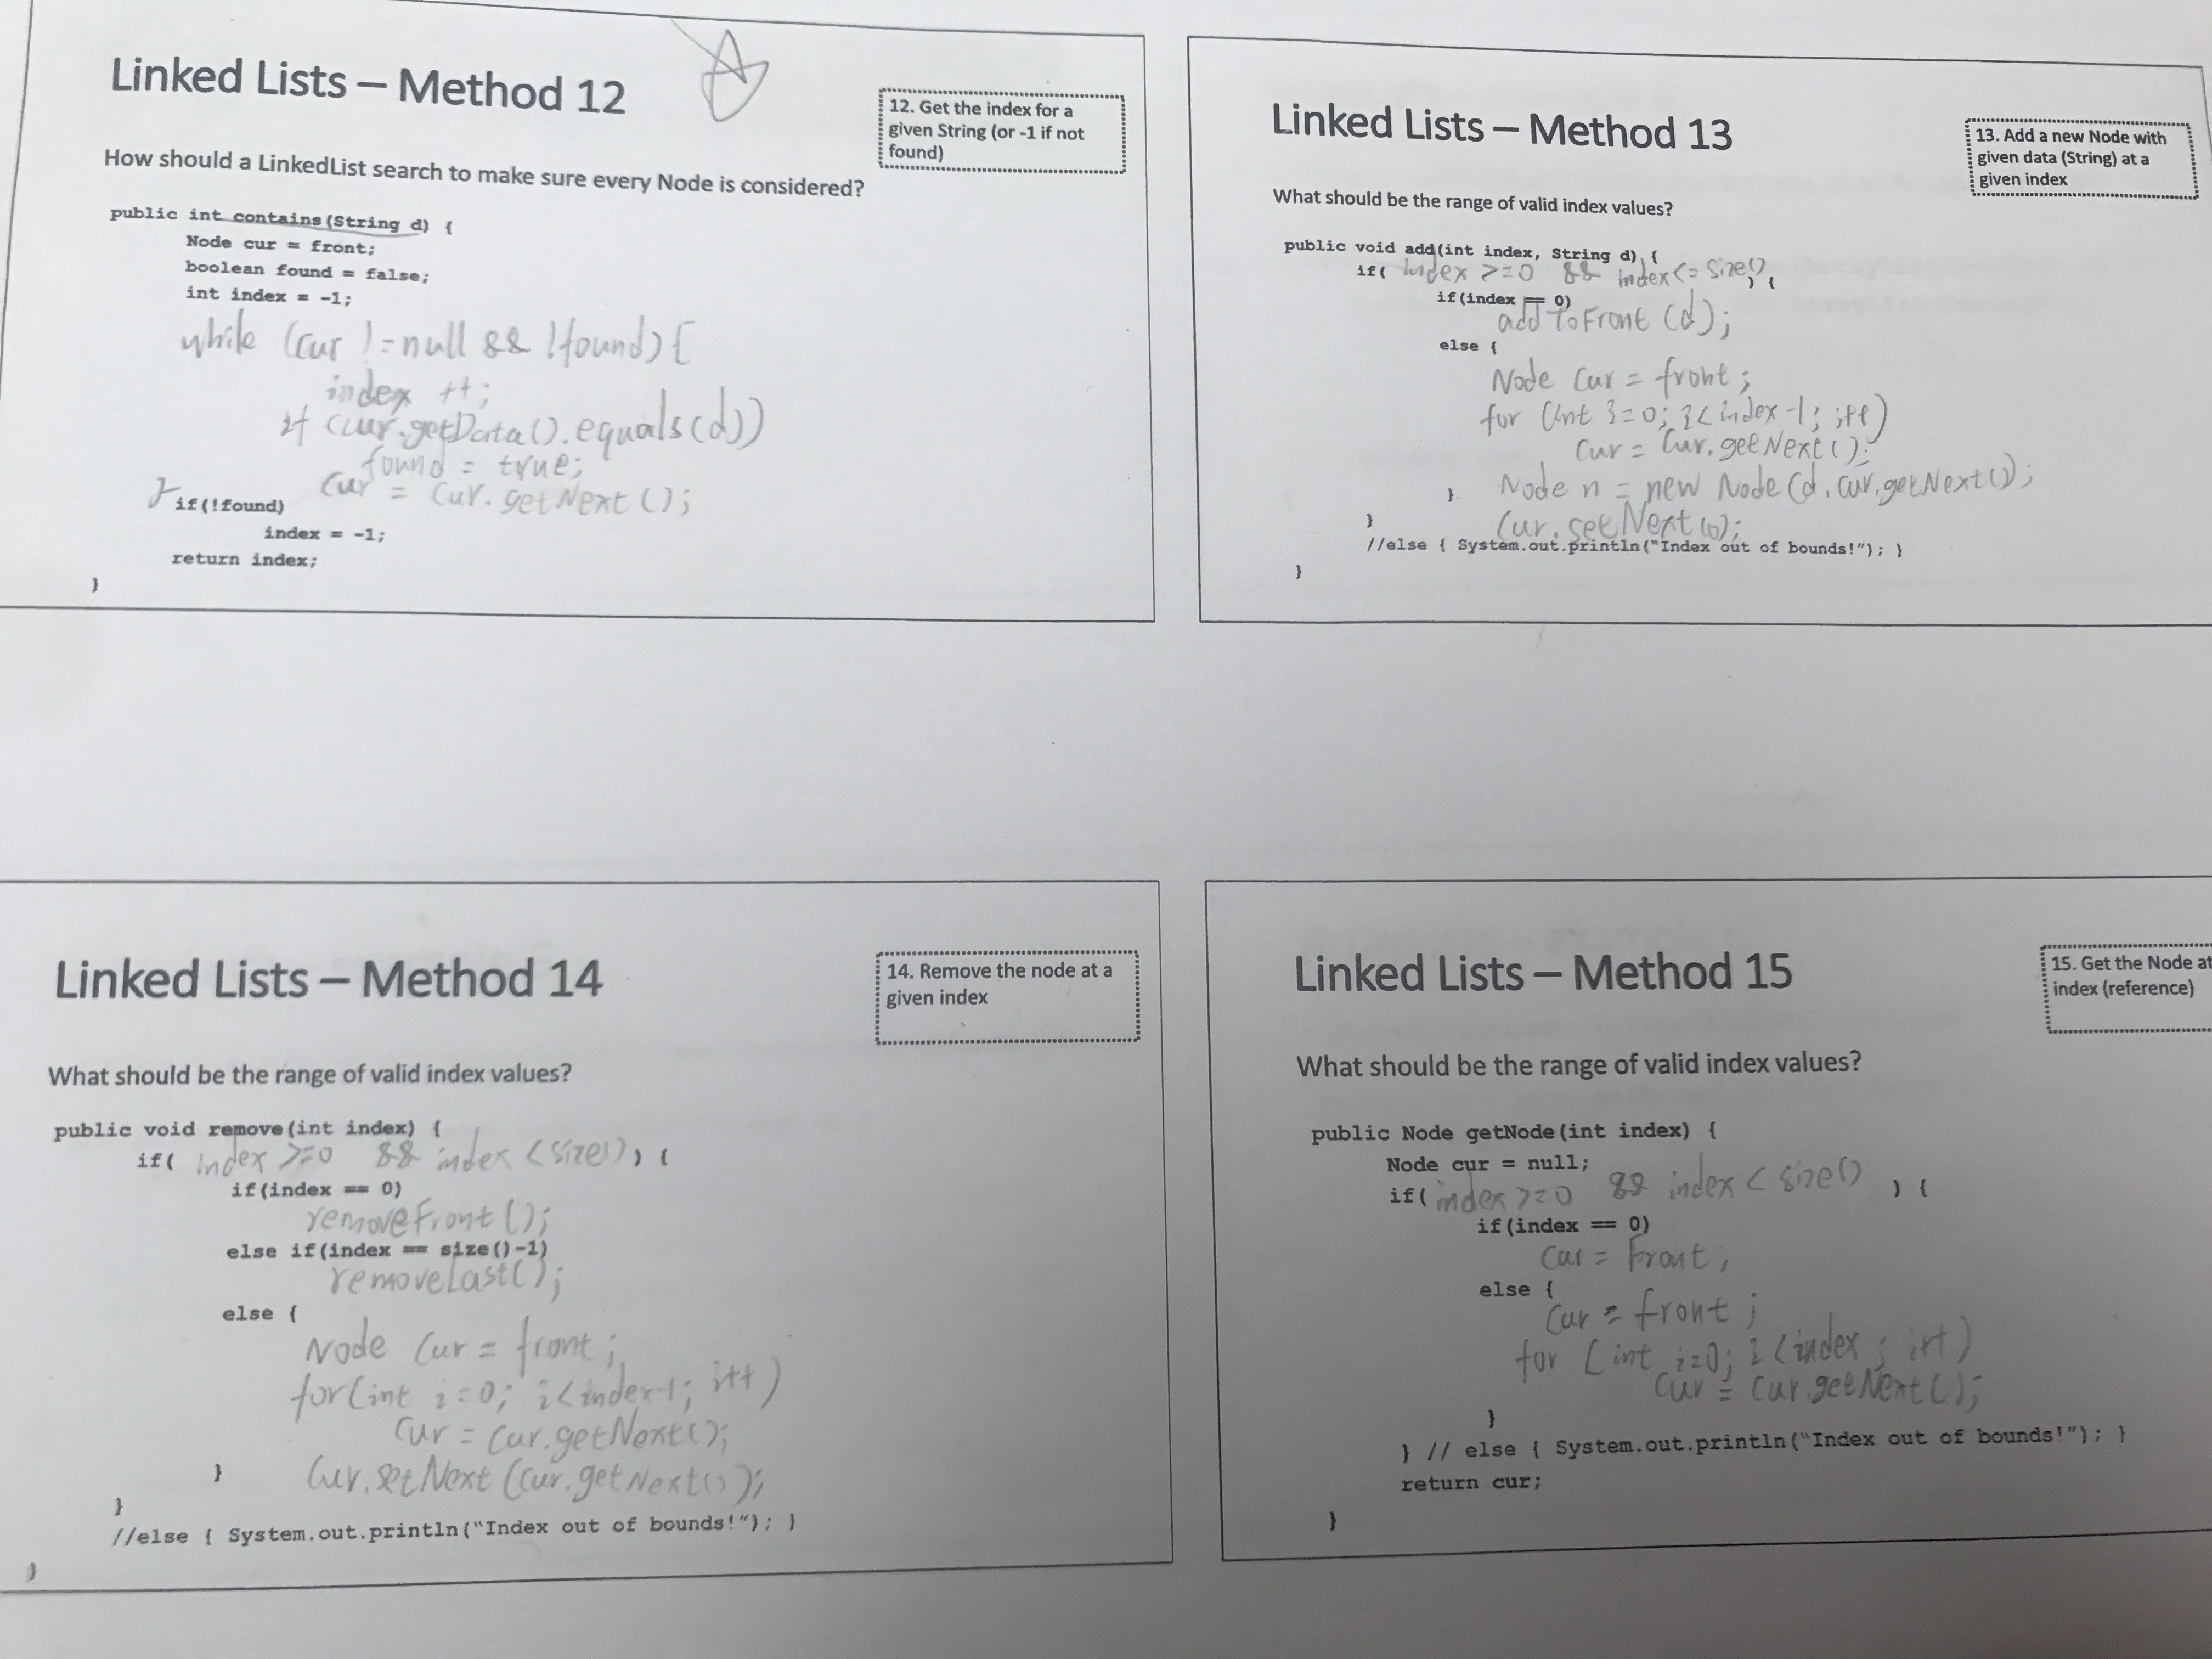 Linked Lists – Method 12
12. Get the index for a
given String (or -1 if not
found)
How should a LinkedList search to make sure every Node is considered?
public int contains(String d) {
Node cur = front;
boolean found = false;
int index = -1;
while (cur != null && !found) {
index ++;
if (cur.getData().equals(d))
found = true;
cur = cur.getNext();
}
if(!found)
index = -1;
return index;
}
Linked Lists – Method 13
13. Add a new Node with
given data (String) at a
given index
What should be the range of valid index values?
public void add(int index, String d) {
if( index >=0 && index <= size() ) {
if(index == 0)
addToFront (d);
else {
Node cur = front;
for (int i=0; i<index-1; i++)
cur = cur.getNext();
Node n = new Node(d, cur.getNext());
cur.setNext(n);
}
}
//else { System.out.println("Index out of bounds!"); }
}
Linked Lists – Method 14
14. Remove the node at a
given index
What should be the range of valid index values?
public void remove(int index) {
if( index >=0 && index < size() ) {
if(index == 0)
removeFront ();
else if(index == size()-1)
removeLast();
else {
Node cur = front;
for(int i=0; i<index-1; i++)
cur = cur.getNext();
cur.setNext (cur.getNext());
}
}
//else { System.out.println("Index out of bounds!"); }
}
Linked Lists – Method 15
15. Get the Node at
index (reference)
What should be the range of valid index values?
public Node getNode(int index) {
Node cur = null;
if( index >=0 && index < size() ) {
if(index == 0)
cur = front;
else {
cur = front;
for (int i=0; i<index; i++)
cur = cur.getNext();
}
} // else { System.out.println("Index out of bounds!"); }
return cur;
}